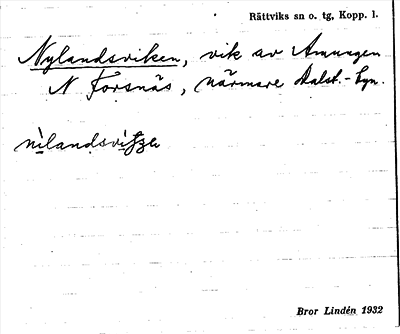 Rättviks sn o. tg, Kopp. l.
Nylandsviken, vik av Amungen
N Forsnäs, närmare Dalst.-byn.
Bror Lindén 1932